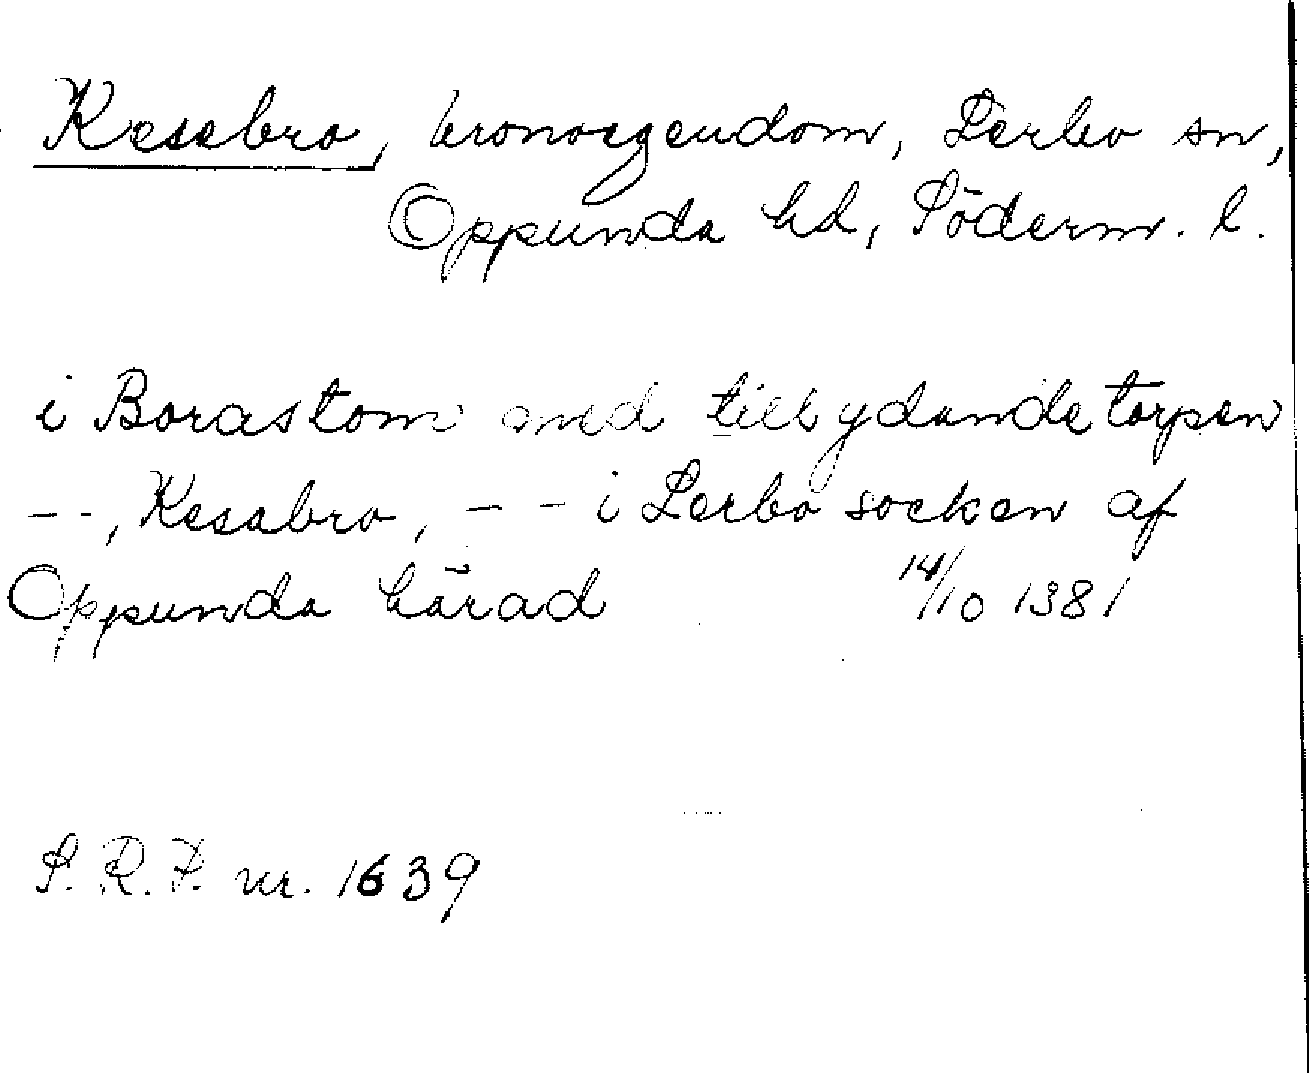 Kesabro, kronoegendom, Lerbo sn,
Oppunda hd, Söderm. l.
i Borastom med tillydande torpen
--, Kesabro, -- i Lerbo socken af
Oppunda härad 14/10 1381
S. R. P. nr. 1639